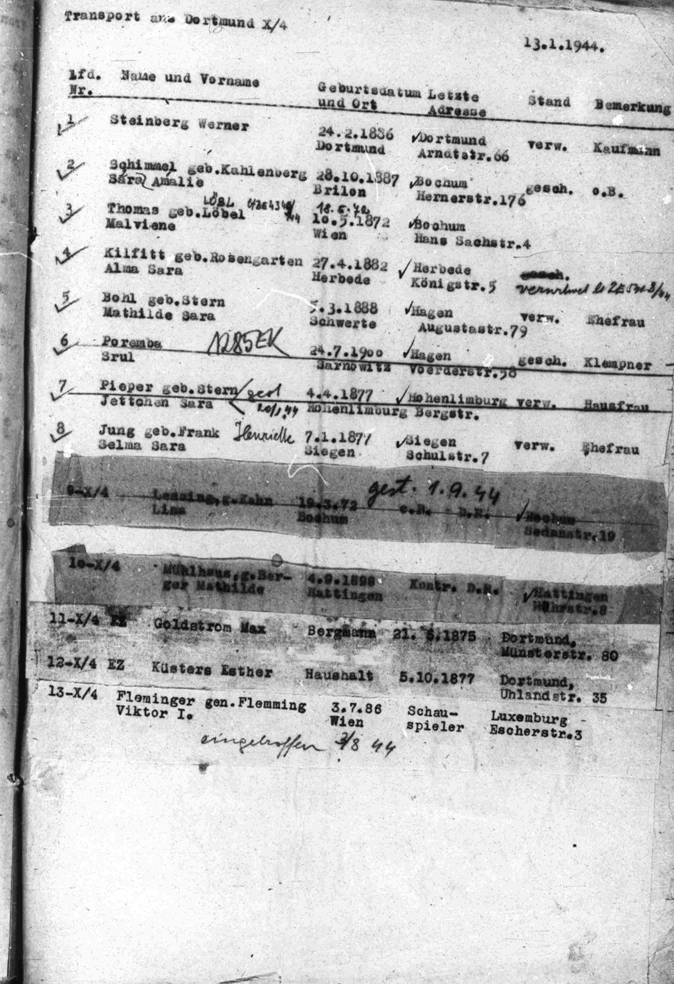 Transport aus Dortmund X/4
13.1.1944.
Lfd. Nr. Name und Vorname Geburtsdatum und Ort Letzte Adresse Stand Bemerkung
1 Steinberg Werner 24.2.1886 Dortmund Arndtstr.66 verw. Kaufmann
Dortmund
2 Schimmel geb.Kahlenberg 28.10.1887 Bochum gesch. o.B.
Sara Amalie Brilon Hernerstr.176
3 Thomas geb.Löbel LÖBL 10.5.1872 Bochum
Malviene Wien Hans Sachstr.4
4 Kilfitt geb.Rosengarten 27.4.1882 Herbede gesch.
Alma Sara Herbede Königstr.5 verwitwet
5 Bohl geb.Stern 5.3.1888 Hagen verw. Ehefrau
Mathilde Sara Schwerte Augustastr.79
6 Poremba 1285EK 24.7.1900 Hagen gesch. Klempner
Srul Sarnowitz Voerderstr.58
7 Pieper geb.Stern gest 4.4.1877 Hohenlimburg verw. Hausfrau
Jettchen Sara Hohenlimburg Bergstr.
8 Jung geb.Frank Henriette 7.1.1877 Siegen verw. Ehefrau
Selma Sara Siegen Schulstr.7
gest. 1.9.44
9-X/4 Lensing,g.Kahn 19.3.72 o.B. D.R. Bochum
Lina Bochum Sedanstr.19
10-X/4 Mühlhaus,g.Ber- 4.9.1898 Kontr. D.R. Hattingen
ger Mathilde Hattingen Ruhrstr.8
11-X/4 EZ Goldstrom Max Bergmann 21. 5.1875 Dortmund,
Münsterstr. 80
12-X/4 EZ Küsters Esther Haushalt 5.10.1877 Dortmund,
Uhlandstr. 35
13-X/4 Fleminger gen.Flemming 3.7.86 Schau- Luxemburg
Viktor I. Wien spieler Escherstr.3
eingetroffen 3/8 44